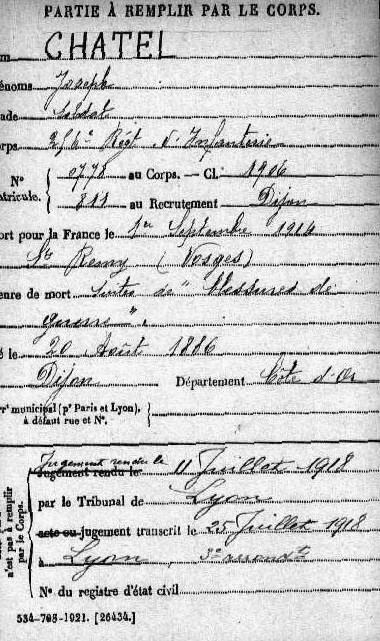 PARTIE À REMPLIR PAR LE CORPS.
m CHATEL
énoms Joseph
ade Soldat
orps Régt d'Infanterie
N° atricule. { 0778 au Corps. — Cl. 1906
811 au Recrutement Dijon
ort pour la France le 1er Septembre 1914
St Remy (Vosges)
enre de mort Suites de "blessures de
guerre".
é le 20 Août 1886
Dijon Département Côte d'Or
rr municipal (pr Paris et Lyon),
à défaut rue et N°.
Jugement rendu le
Jugement rendu le 11 Juillet 1918
par le Tribunal de Lyon
acte ou jugement transcrit le 25 Juillet 1918
à Lyon, 3e arrondt
N° du registre d'état civil
n'est pas à remplir
par le Corps.
534-708-1921. [26434.]